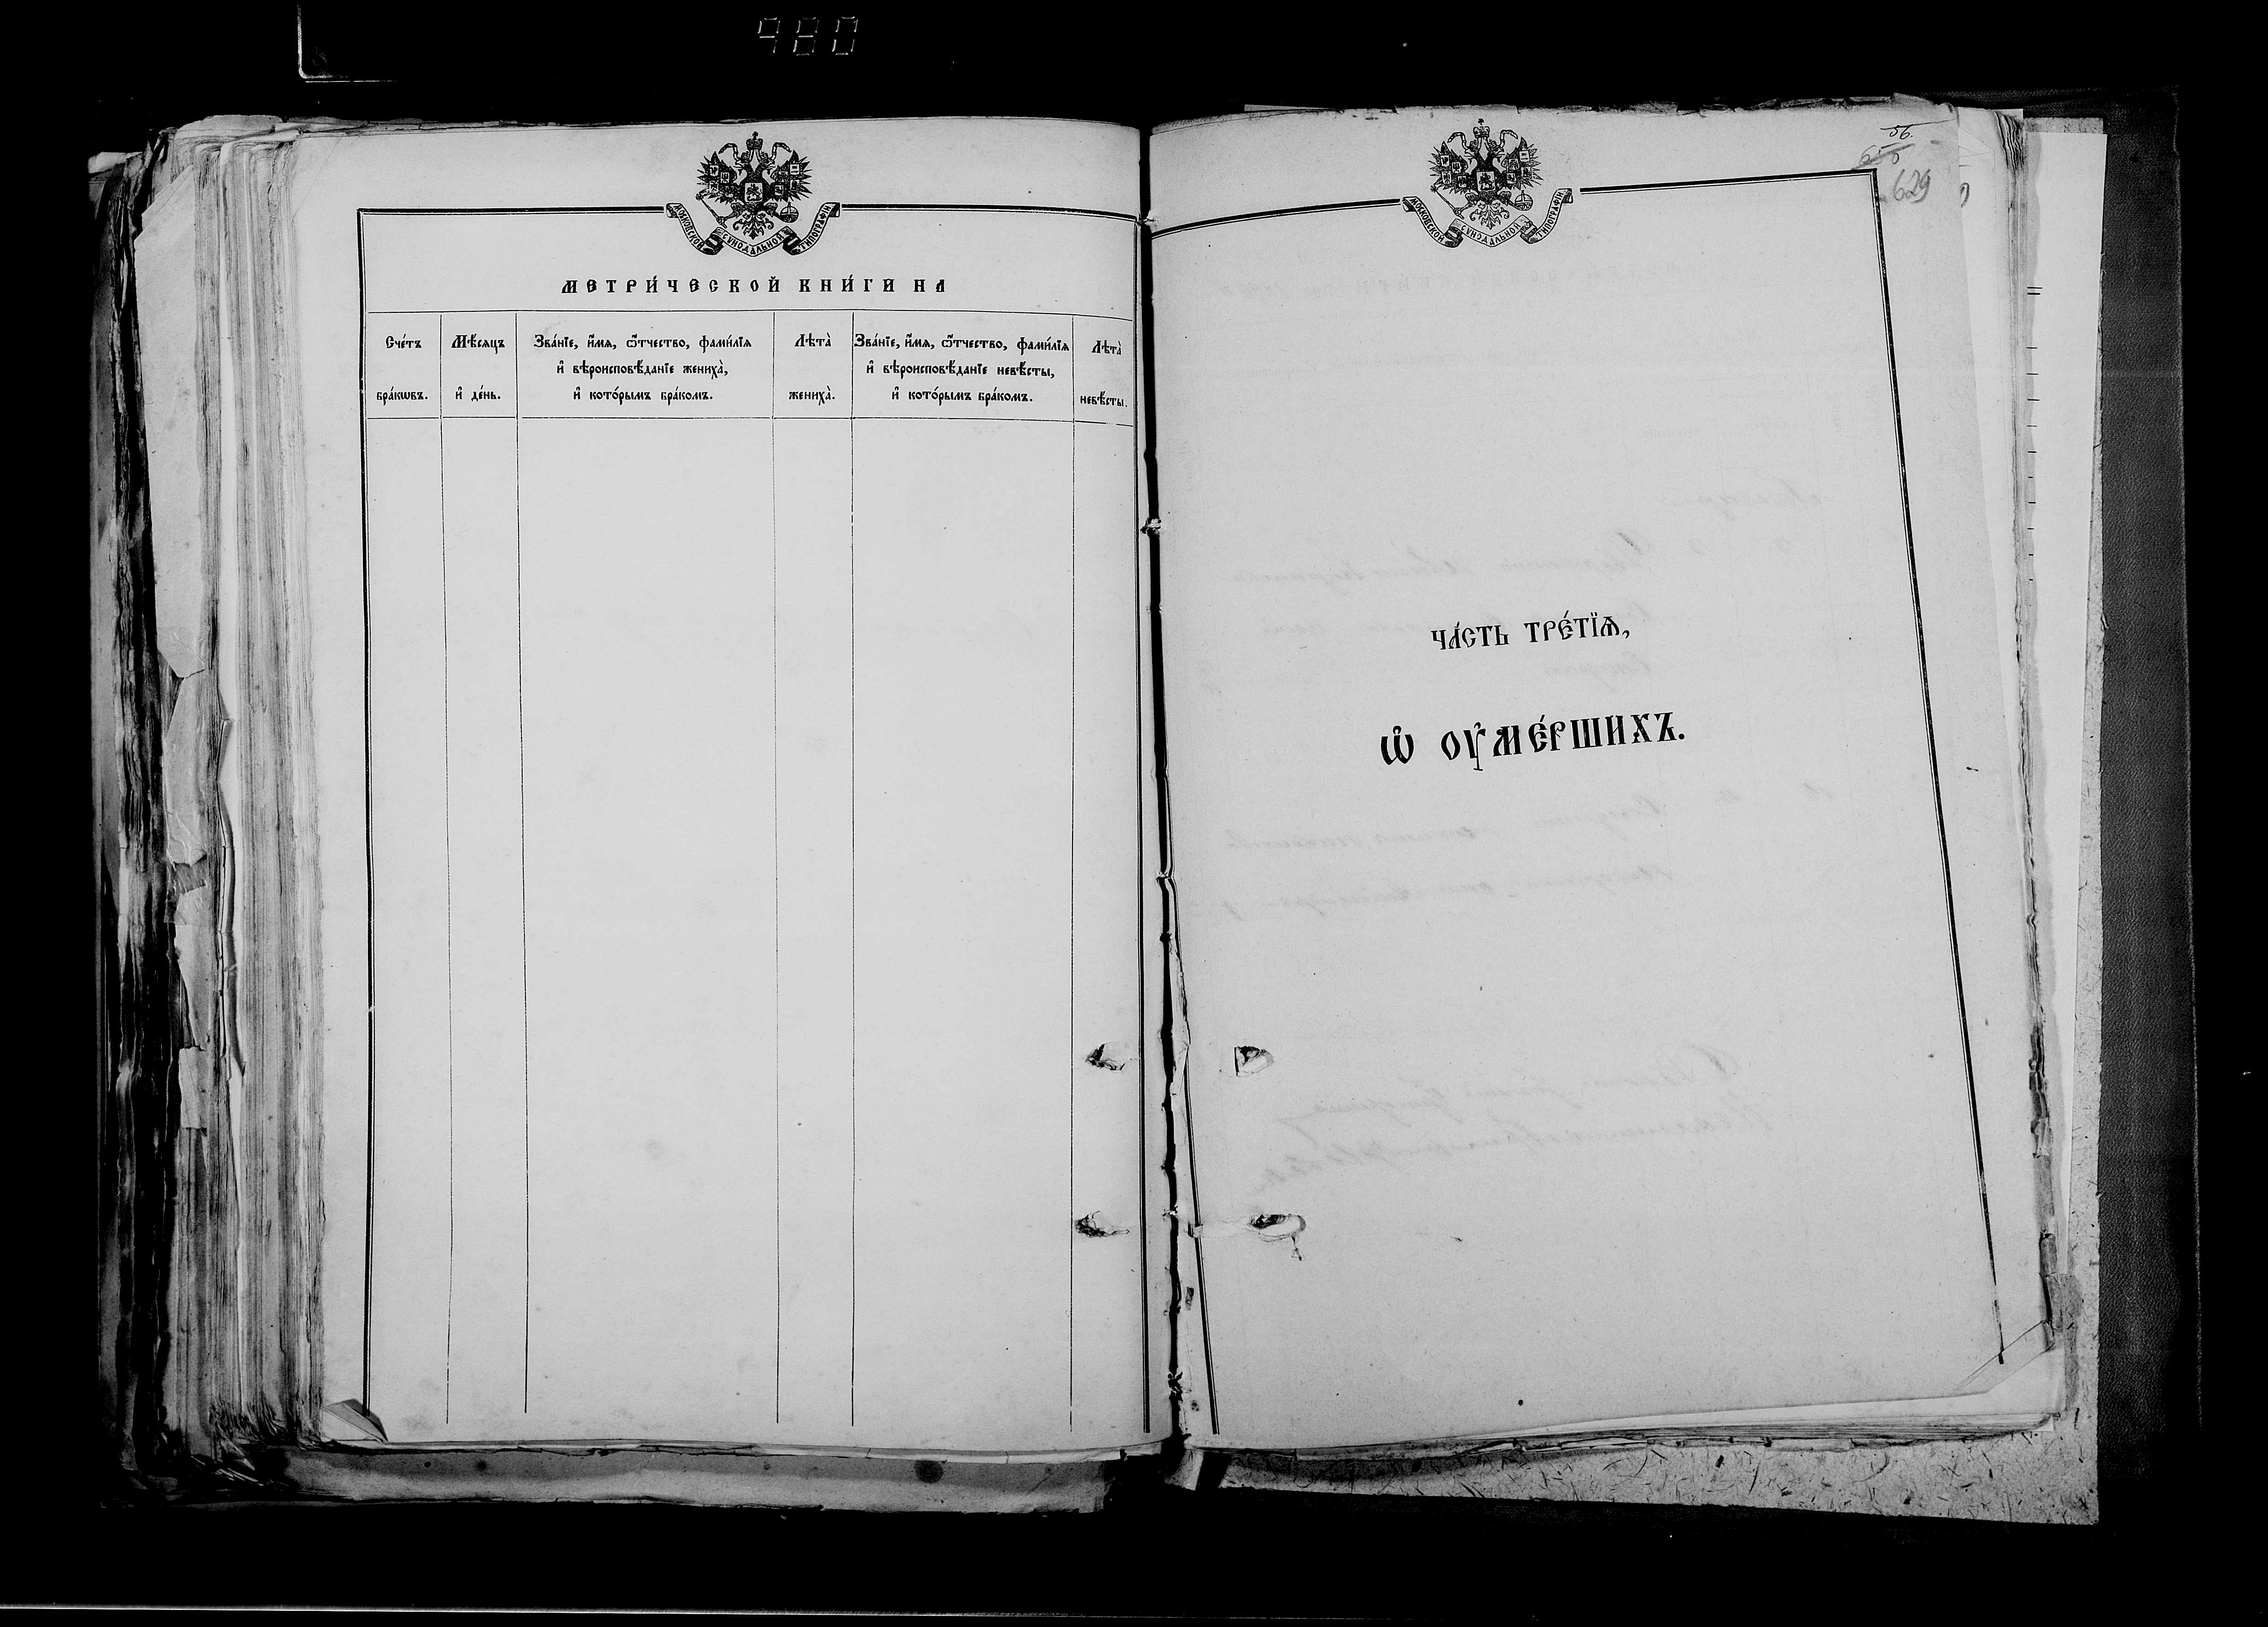 980
МОСКОВСКОЙ СѴНОДАЛЬНОЙ ТИПОГРАФІИ
МЕТРИ́ЧЕСКОЙ КНИ́ГИ НА
Сче́тъ бра́кѡвъ.
Мѣ́сяцъ и҆ де́нь.
Зва́нїе, и҆́мѧ, ѻ҆́тчество, фами́лїѧ
и҆ вѣроисповѣ́данїе жениха̀,
и҆ кото́рымъ бра́комъ.
Лѣта̀ жениха̀.
Зва́нїе, и҆́мѧ, ѻ҆́тчество, фами́лїѧ
и҆ вѣроисповѣ́данїе невѣ́сты,
и҆ кото́рымъ бра́комъ.
Лѣта̀ невѣ́сты.
МОСКОВСКОЙ СѴНОДАЛЬНОЙ ТИПОГРАФІИ
56.
629
ЧА́СТЬ ТРЕ́ТЇѦ,
Ѡ҆ ОУ҆МЕ́РШИХЪ.